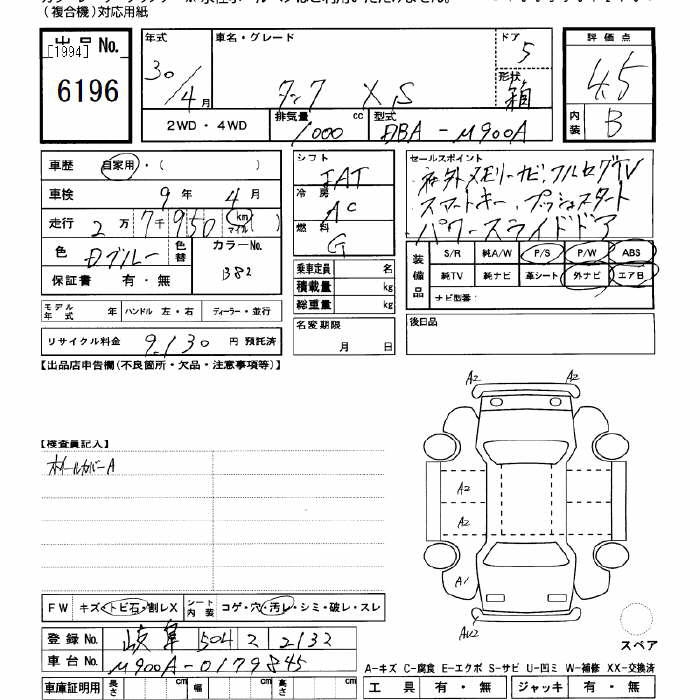 (複合機)対応用紙
出品 No.
[1994]
6196
年式 30/4月
車名・グレード タンク XS
ドア 5
形状 箱
2WD・4WD
排気量 1000 cc
型式 DBA-M900A
評価点 4.5
内装 B
車歴 自家用・( )
車検 9年 4月
走行 2万 7千950 km マイル
色 Dブルー 色替
カラーNo. B82
保証書 有・無
モデル年式 年 ハンドル 左・右 ディーラー・並行
リサイクル料金 9,130 円 預託済
シフト IAT
冷房 AC
燃料 G
乗車定員 名
積載量 kg
総重量 kg
名変期限
月 日
セールスポイント
社外メモリーナビ、フルセグTV
スマートキー、プッシュスタート
パワースライドドア
装備品
S/R 純A/W P/S P/W ABS
純TV 純ナビ 革シート 外ナビ エアB
ナビ型番:
後日品
【出品店申告欄(不良箇所・欠品・注意事項等)】
【検査員記入】
ホイールカバーA
A2 A2
A2
A2
A1
AU2
スペア
FW キズ・トビ石・割レX シート内装 コゲ・穴・汚レ・シミ・破レ・スレ
登録 No. 岐阜 504 こ 2132
車台 No. M900A-0179845
車庫証明用 長さ cm 幅 cm 高さ cm
A-キズ C-腐食 E-エクボ S-サビ U-凹ミ W-補修 XX-交換済
工具 有・無 ジャッキ 有・無